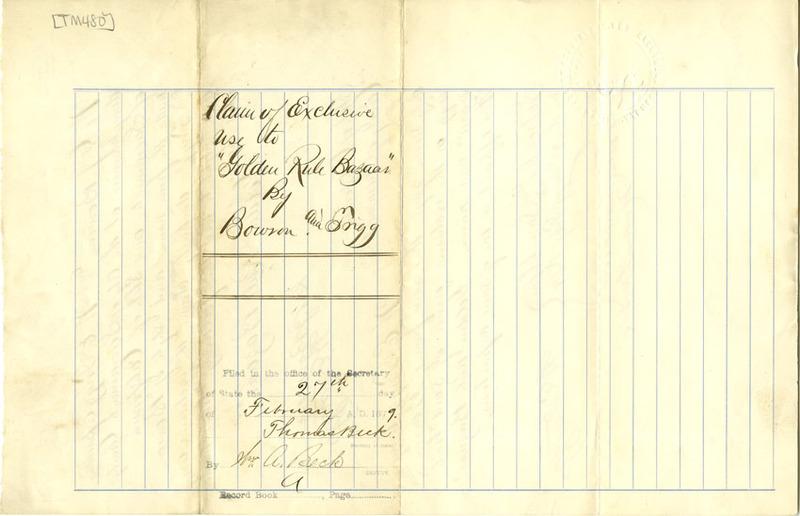 [TM480]
Claim of Exclusive
use to
"Golden Rule Bazaar"
By
Bowson and
Filed in the office of the Secretary
of State the 27th day
of February A.D. 1879.
Thomas Beck.
By Wm A. Beck
DEPUTY
Record Book A, Page